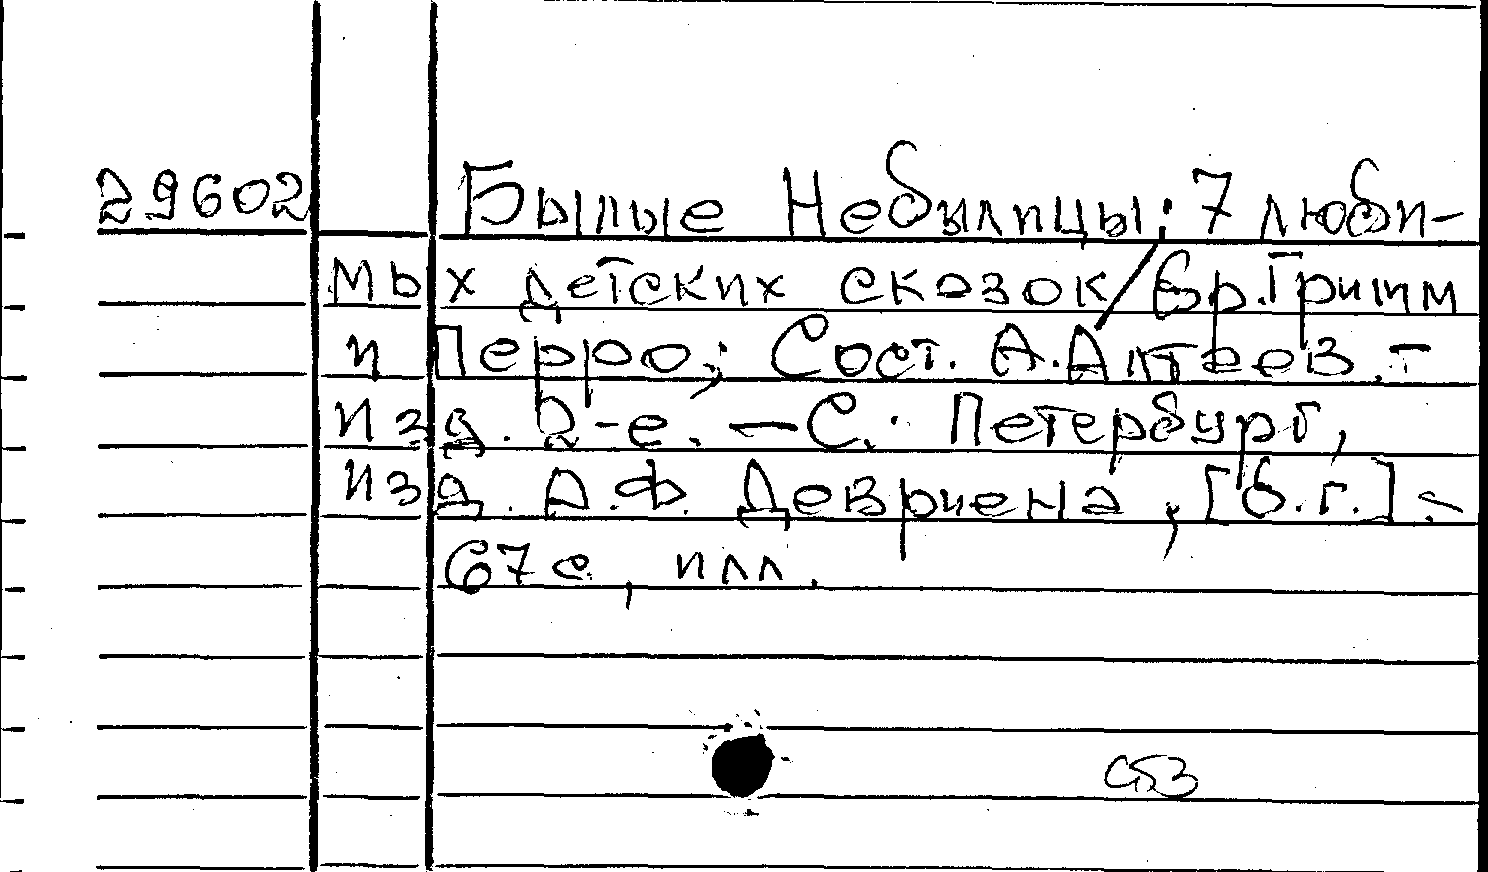 29602 Былые Небылицы: 7 люби-
мых детских сказок / бр. Гримм
и Перро; Сост. А. Алтаев. -
Изд. 2-е. - С.: Петербург,
изд. А.Ф. Девриена, [б.г.] -
67 с., илл.